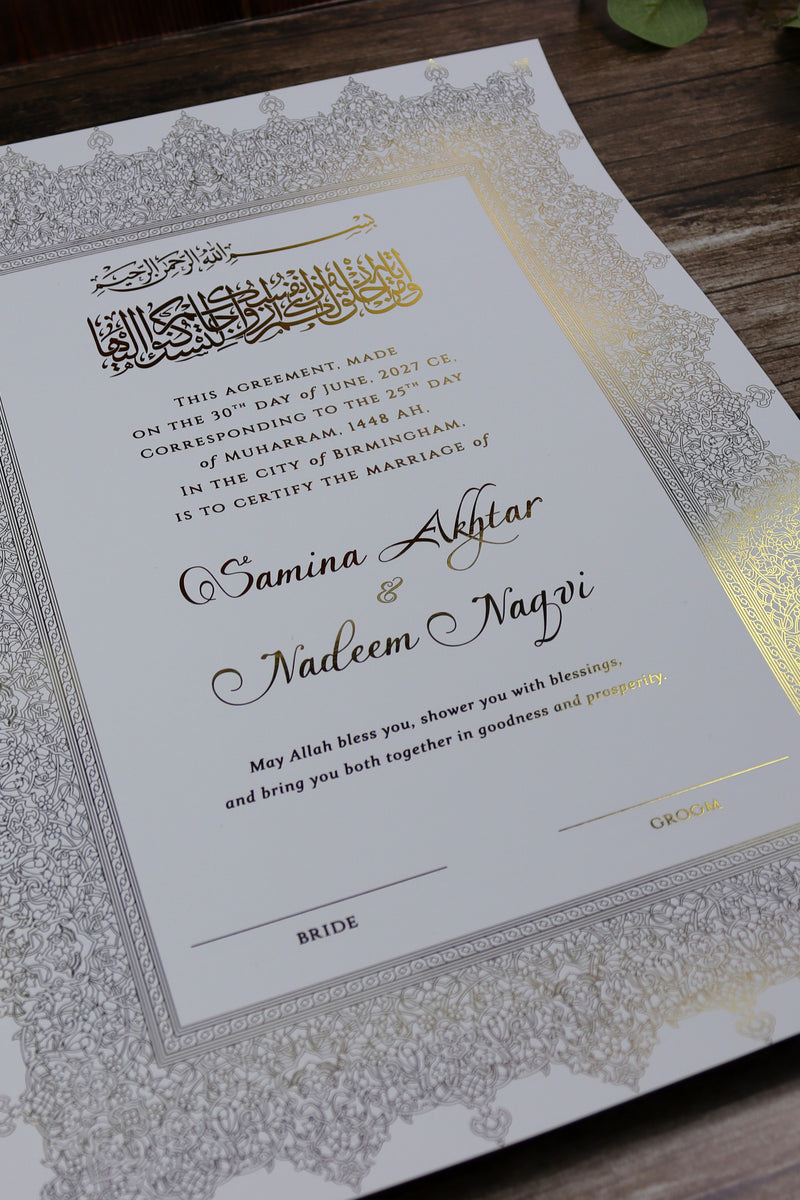 بسم الله الرحمن الرحيم
ومن آياته أن خلق لكم من أنفسكم أزواجا لتسكنوا إليها
THIS AGREEMENT, MADE
ON THE 30TH DAY of JUNE, 2027 CE,
CORRESPONDING TO THE 25TH DAY
of MUHARRAM, 1448 AH,
IN THE CITY of BIRMINGHAM,
IS TO CERTIFY THE MARRIAGE of
Samina Akhtar
&
Nadeem Naqvi
May Allah bless you, shower you with blessings,
and bring you both together in goodness and prosperity.
GROOM
BRIDE